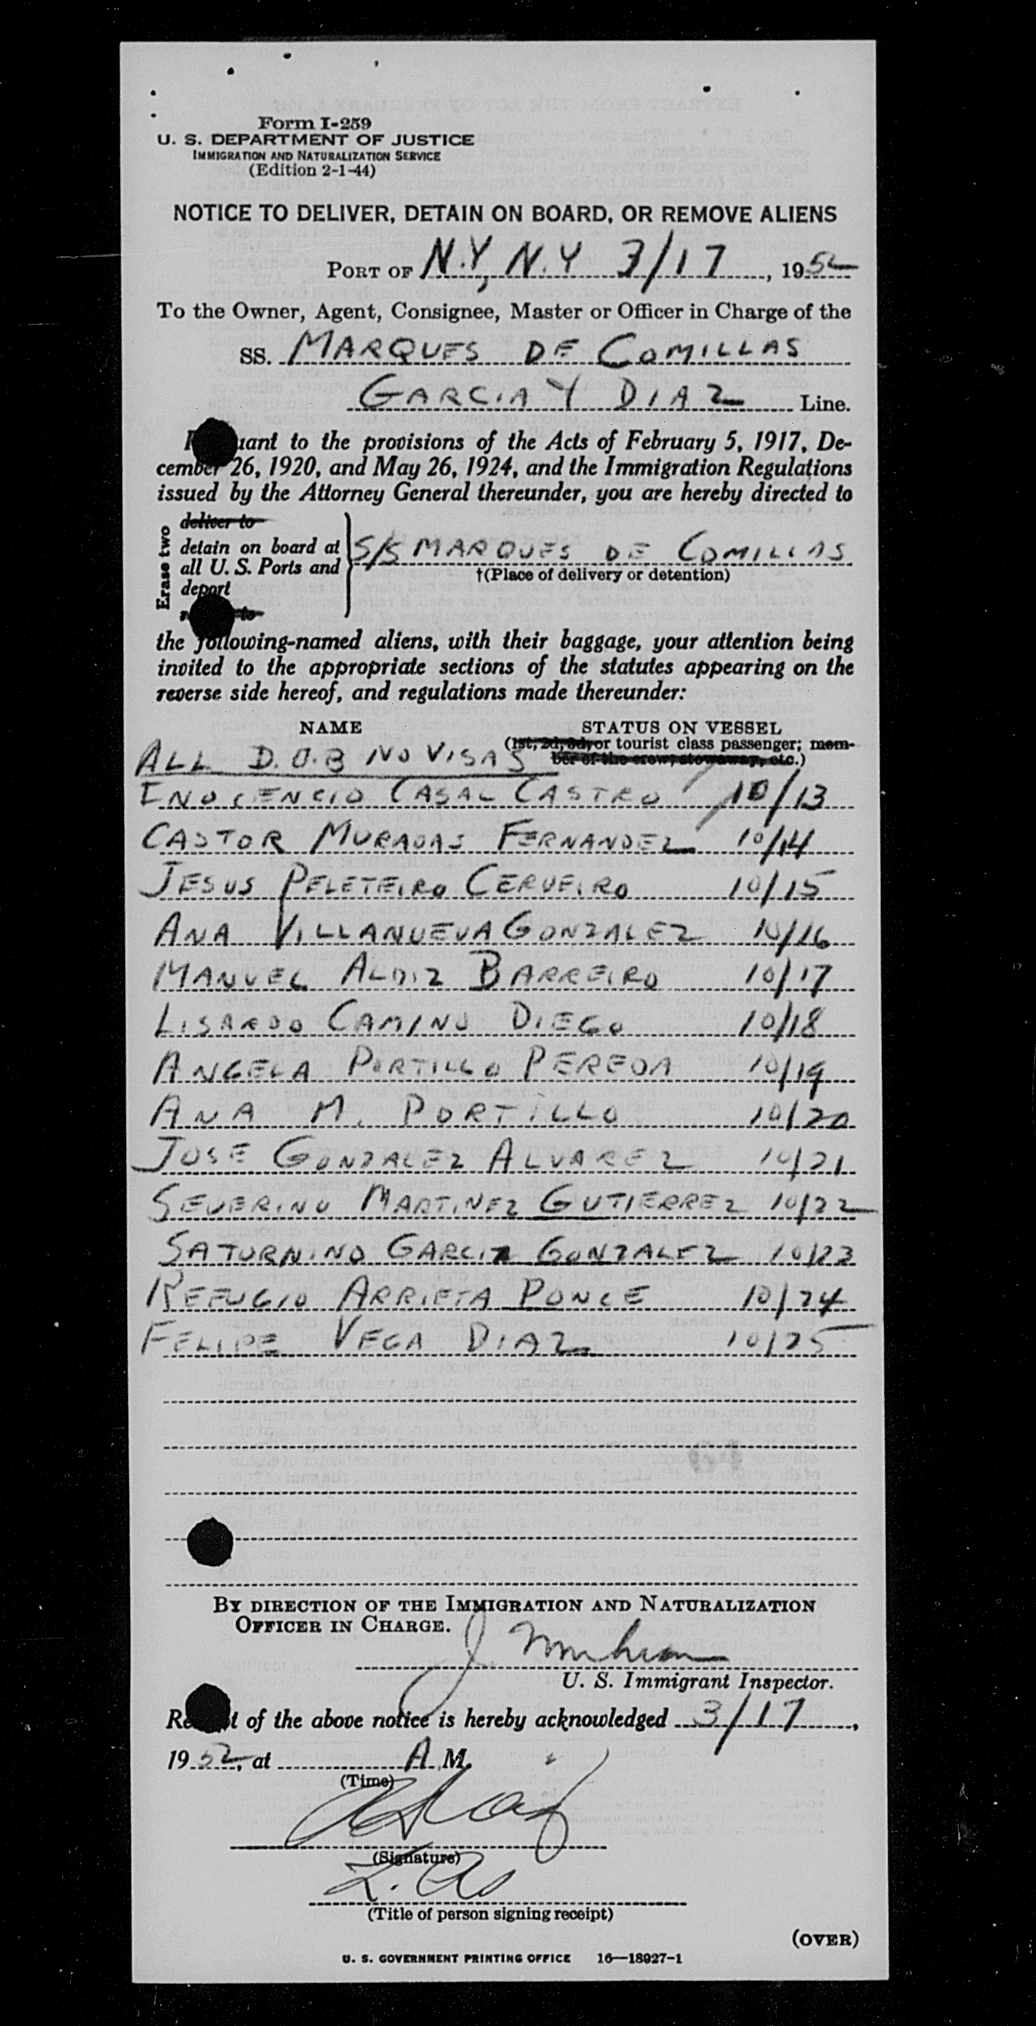 Form I-259
U. S. DEPARTMENT OF JUSTICE
IMMIGRATION AND NATURALIZATION SERVICE
(Edition 2-1-44)
NOTICE TO DELIVER, DETAIN ON BOARD, OR REMOVE ALIENS
PORT OF N.Y, N.Y 3/17, 1952
To the Owner, Agent, Consignee, Master or Officer in Charge of the
SS. MARQUES DE COMILLAS
GARCIA Y DIAZ Line.
uant to the provisions of the Acts of February 5, 1917, De-
cember 26, 1920, and May 26, 1924, and the Immigration Regulations
issued by the Attorney General thereunder, you are hereby directed to
Erase two
deliver to
detain on board at
all U. S. Ports and
deport
to
S/S MARQUES DE COMILLAS
†(Place of delivery or detention)
the following-named aliens, with their baggage, your attention being
invited to the appropriate sections of the statutes appearing on the
reverse side hereof, and regulations made thereunder:
NAME STATUS ON VESSEL
(1st, 2d, 3d, or tourist class passenger; mem-
ber of the crew, stowaway, etc.)
ALL D.O.B NO VISAS
INOCENCIO CASAL CASTRO 10/13
CASTOR MURADAS FERNANDEZ 10/14
JESUS PELETEIRO CERVEIRO 10/15
ANA VILLANUEVA GONZALEZ 10/16
MANUEL BARREIRO 10/17
LISARDO CAMINO DIEGO 10/18
ANGELA PORTILLO PEREDA 10/19
ANA M. PORTILLO 10/20
JOSE GONZALEZ ALVAREZ 10/21
SEVERINO MARTINEZ GUTIERREZ 10/22
SATURNINO GARCIA GONZALEZ 10/23
REFUGIO ARRIETA PONCE 10/24
FELIPE VEGA DIAZ 10/25
BY DIRECTION OF THE IMMIGRATION AND NATURALIZATION
OFFICER IN CHARGE.
U. S. Immigrant Inspector.
Re t of the above notice is hereby acknowledged 3/17,
1952, at A.M.
(Time)
(Signature)
(Title of person signing receipt)
(OVER)
U. S. GOVERNMENT PRINTING OFFICE 16—18927-1